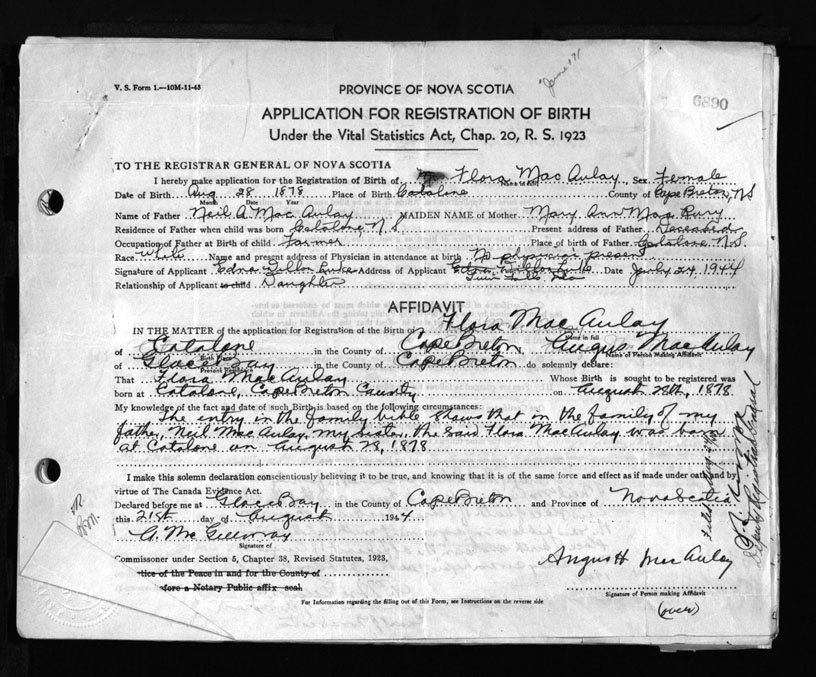 June 171
V. S. Form 1.—10M-11-43
PROVINCE OF NOVA SCOTIA
6890
APPLICATION FOR REGISTRATION OF BIRTH
Under the Vital Statistics Act, Chap. 20, R. S. 1923
TO THE REGISTRAR GENERAL OF NOVA SCOTIA
I hereby make application for the Registration of Birth of Flora Mac Aulay, Sex Female
Name in full
Date of Birth Aug 28 1878 Place of Birth Catalone County of Cape Breton, N.S
Month Day Year
Name of Father Neil A Mac Aulay MAIDEN NAME of Mother Mary Ann Mac
Residence of Father when child was born Catalone N.S. Present address of Father Deceased
Occupation of Father at Birth of child Farmer Place of birth of Father Catalone N.S.
Race White Name and present address of Physician in attendance at birth No physician present
Signature of Applicant Edna Address of Applicant Date July 24, 1944
Relationship of Applicant to child Daughter
AFFIDAVIT
IN THE MATTER of the application for Registration of the Birth of Flora Mac Aulay
Name in full
of Catalone in the County of Cape Breton, Angus MacAulay
Birth Place Name of Person Making Affidavit
of Glace Bay in the County of Cape Breton do solemnly declare:
Present Residence
That Flora MacAulay Whose Birth is sought to be registered was
born at Catalone, Cape Breton County on August 28th, 1878
My knowledge of the fact and date of such Birth is based on the following circumstances:
The entry in the family bible shows that in the family of my
father, Neil MacAulay, my sister, the said Flora MacAulay was born
at Catalone on August 28, 1878
I make this solemn declaration conscientiously believing it to be true, and knowing that it is of the same force and effect as if made under oath and by
virtue of The Canada Evidence Act.
Declared before me at Glace Bay in the County of Cape Breton and Province of Nova Scotia
this 21st day of August 1944
A. Mc
Signature of
Commissioner under Section 5, Chapter 38, Revised Statutes, 1923,
tice of the Peace in and for the County of
fore a Notary Public affix seal.
Angus H MacAulay
Signature of Person making Affidavit
For Information regarding the filling out of this Form, see Instructions on the reverse side
(over)
Filed Aug
Deputy Registrar General